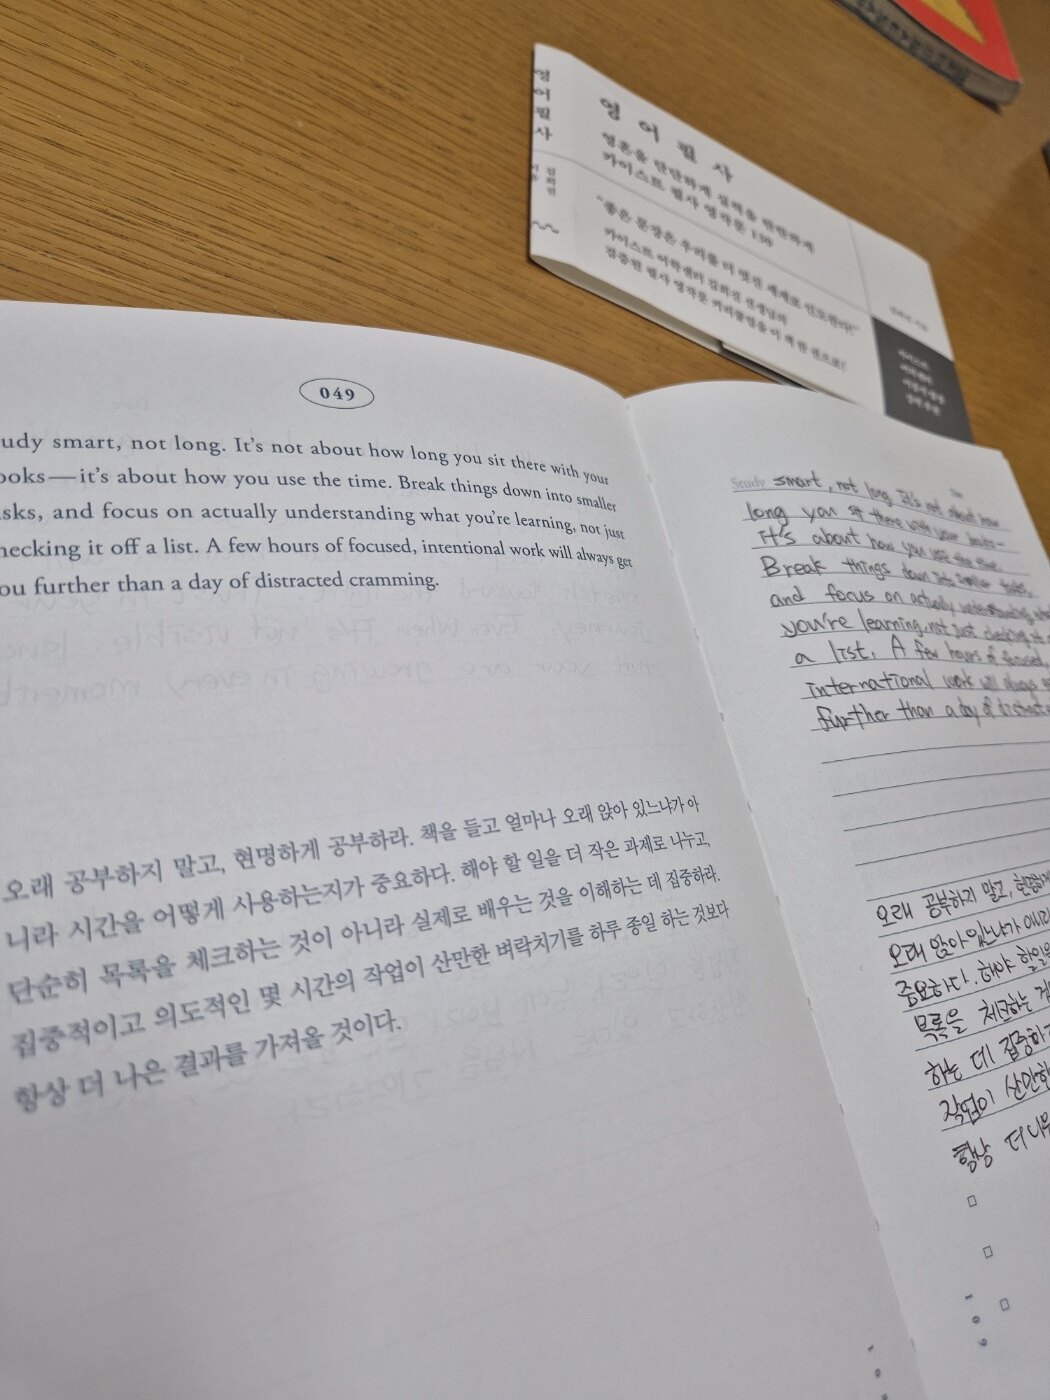 영어필사
영어필사
영혼을 단단하게 실력을 탄탄하게
카이스트 필사 영작문 130
"좋은 문장은 우리를 더 멋진 세계로 인도한다!"
카이스트 어학센터 김희진 선생님의
집중된 필사 영작문 커리큘럼을 이 책 한 권으로!
049
udy smart, not long. It's not about how long you sit there with your
ooks—it's about how you use the time. Break things down into smaller
sks, and focus on actually understanding what you're learning, not just
hecking it off a list. A few hours of focused, intentional work will always get
ou further than a day of distracted cramming.
오래 공부하지 말고, 현명하게 공부하라. 책을 들고 얼마나 오래 앉아 있느냐가 아
니라 시간을 어떻게 사용하는지가 중요하다. 해야 할 일을 더 작은 과제로 나누고,
단순히 목록을 체크하는 것이 아니라 실제로 배우는 것을 이해하는 데 집중하라.
집중적이고 의도적인 몇 시간의 작업이 산만한 벼락치기를 하루 종일 하는 것보다
항상 더 나은 결과를 가져올 것이다.
Study smart, not long. It's not about how
long you sit there with your books-
It's about how you use the time.
Break things down into smaller tasks,
and focus on actually understanding
you're learning, not just checking it
a list. A few hours of focused,
international work will always
further than a day of distract
오래 공부하지 말고, 현명하게
오래 앉아 있느냐가 아니라
중요하다. 해야 할일을
목록을 체크하는
하는 데 집중하
작업이 산만한
항상 더 나
109